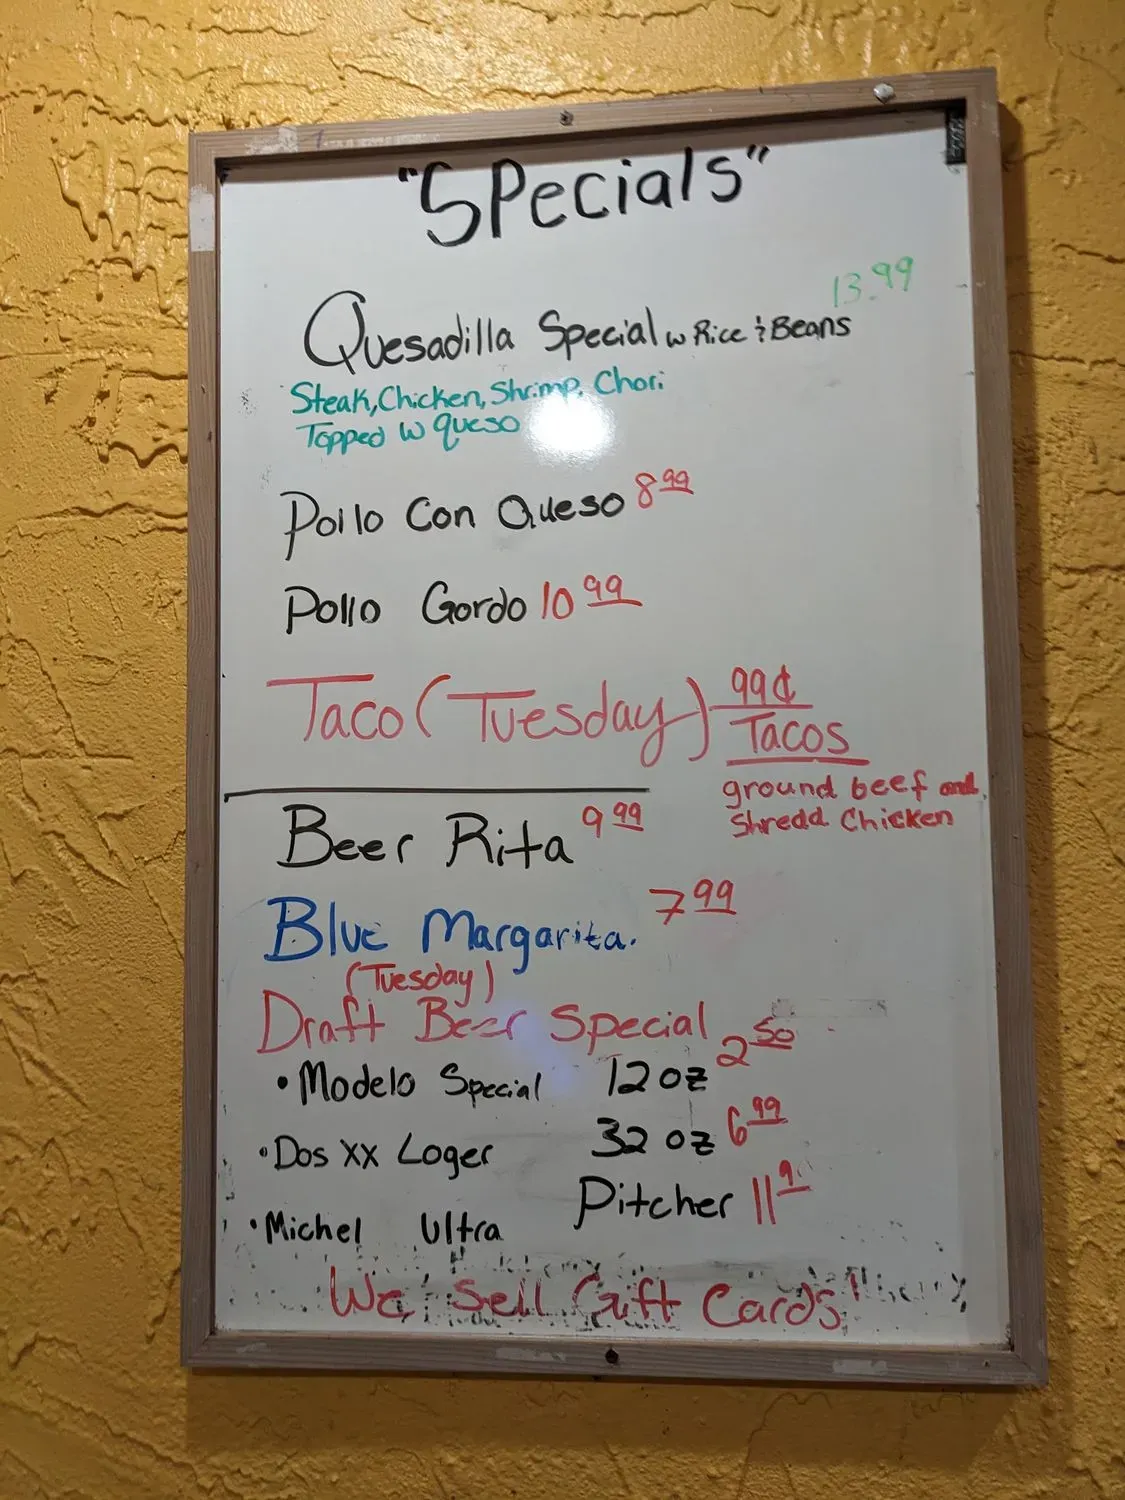 "Specials"
13.99
Quesadilla Special w Rice & Beans
Steak, Chicken, Shrimp, Chori
Topped w queso
Pollo Con Queso 8 99
Pollo Gordo 10 99
Taco (Tuesday) 99¢
Tacos
ground beef and
Shredd Chicken
Beer Rita 9 99
Blue Margarita. 7 99
(Tuesday)
Draft Beer Special
• Modelo Special 12 oz 2 50
• Dos XX Loger 32 oz 6 99
Pitcher 11 9
• Michel Ultra
We Sell Gift Cards!